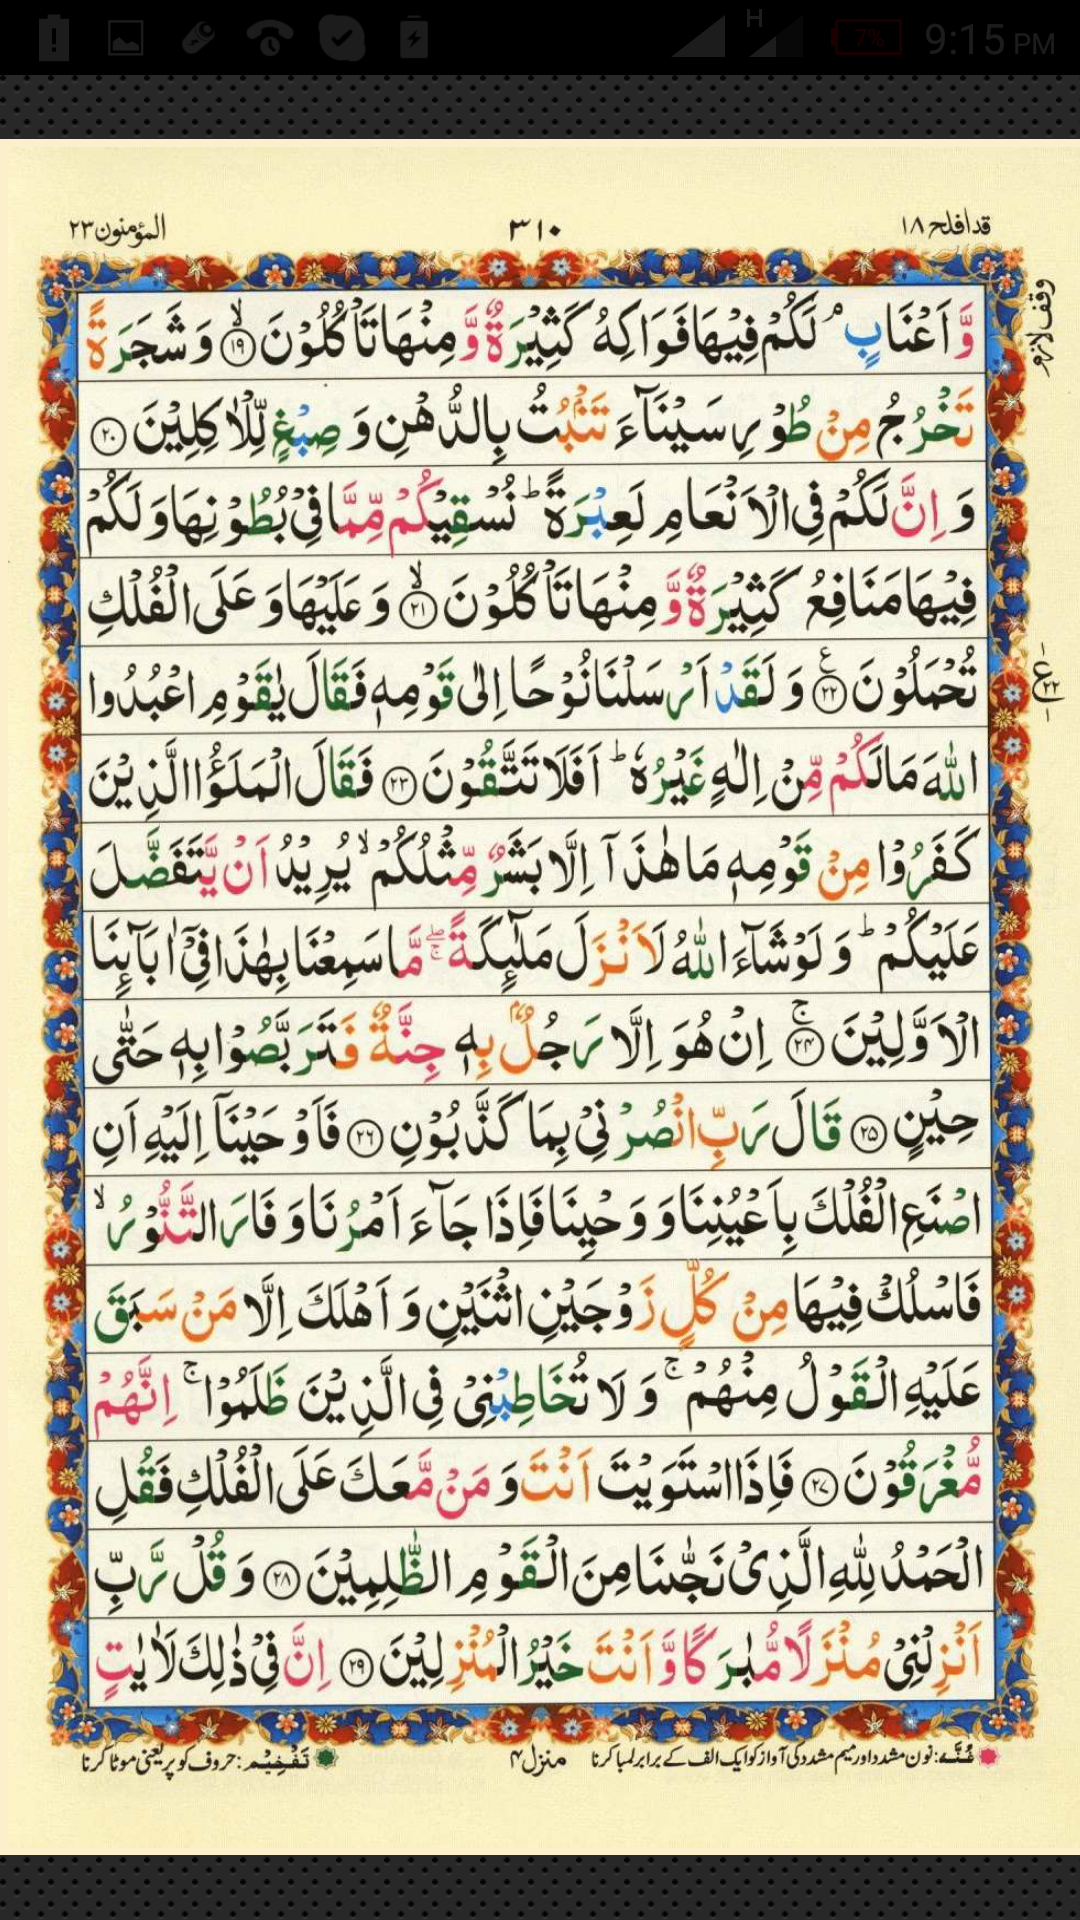 H 7% 9:15 PM
قدافلح ۱۸ ۳۱۰ المؤمنون ۲۳
وقف لازم
وَّ اَعْنَابٍ ۘ لَكُمْ فِيْهَا فَوَاكِهُ كَثِيْرَةٌ وَّ مِنْهَا تَاْكُلُوْنَ ۙ﴿۱۹﴾ وَ شَجَرَةً
تَخْرُجُ مِنْ طُوْرِ سَيْنَآءَ تَنْۢبُتُ بِالدُّهْنِ وَ صِبْغٍ لِّلْاٰكِلِيْنَ ﴿۲۰﴾
وَ اِنَّ لَكُمْ فِی الْاَنْعَامِ لَعِبْرَةً ؕ نُسْقِيْكُمْ مِّمَّا فِیْ بُطُوْنِهَا وَ لَكُمْ
فِيْهَا مَنَافِعُ كَثِيْرَةٌ وَّ مِنْهَا تَاْكُلُوْنَ ۙ﴿۲۱﴾ وَ عَلَيْهَا وَ عَلَی الْفُلْكِ
تُحْمَلُوْنَ ﴿۲۲﴾ ع وَ لَقَدْ اَرْسَلْنَا نُوْحًا اِلٰی قَوْمِهٖ فَقَالَ يٰقَوْمِ اعْبُدُوا
ع ۲۲
اللّٰهَ مَا لَكُمْ مِّنْ اِلٰهٍ غَيْرُهٗ ؕ اَفَلَا تَتَّقُوْنَ ﴿۲۳﴾ فَقَالَ الْمَلَؤُا الَّذِيْنَ
كَفَرُوْا مِنْ قَوْمِهٖ مَا هٰذَاۤ اِلَّا بَشَرٌ مِّثْلُكُمْ ۙ يُرِيْدُ اَنْ يَّتَفَضَّلَ
عَلَيْكُمْ ؕ وَ لَوْ شَآءَ اللّٰهُ لَاَنْزَلَ مَلٰٓئِكَةً ۚۖ مَّا سَمِعْنَا بِهٰذَا فِیْۤ اٰبَآئِنَا
الْاَوَّلِيْنَ ۚ﴿۲۴﴾ اِنْ هُوَ اِلَّا رَجُلٌۢ بِهٖ جِنَّةٌ فَتَرَبَّصُوْا بِهٖ حَتّٰی
حِيْنٍ ﴿۲۵﴾ قَالَ رَبِّ انْصُرْنِیْ بِمَا كَذَّبُوْنِ ﴿۲۶﴾ فَاَوْحَيْنَاۤ اِلَيْهِ اَنِ
اصْنَعِ الْفُلْكَ بِاَعْيُنِنَا وَ وَحْيِنَا فَاِذَا جَآءَ اَمْرُنَا وَ فَارَ التَّنُّوْرُ ۙ
فَاسْلُكْ فِيْهَا مِنْ كُلٍّ زَوْجَيْنِ اثْنَيْنِ وَ اَهْلَكَ اِلَّا مَنْ سَبَقَ
عَلَيْهِ الْقَوْلُ مِنْهُمْ ۚ وَ لَا تُخَاطِبْنِیْ فِی الَّذِيْنَ ظَلَمُوْا ۚ اِنَّهُمْ
مُّغْرَقُوْنَ ﴿۲۷﴾ فَاِذَا اسْتَوَيْتَ اَنْتَ وَ مَنْ مَّعَكَ عَلَی الْفُلْكِ فَقُلِ
الْحَمْدُ لِلّٰهِ الَّذِیْ نَجّٰىنَا مِنَ الْقَوْمِ الظّٰلِمِيْنَ ﴿۲۸﴾ وَ قُلْ رَّبِّ
اَنْزِلْنِیْ مُنْزَلًا مُّبٰرَكًا وَّ اَنْتَ خَيْرُ الْمُنْزِلِيْنَ ﴿۲۹﴾ اِنَّ فِیْ ذٰلِكَ لَاٰيٰتٍ
غُنَّہ: نون مشدد اور میم مشدد کی آواز کو ایک الف کے برابر لمبا کرنا منزل ۴ تَفْخِیْم: حروف کو پر یعنی موٹا کرنا